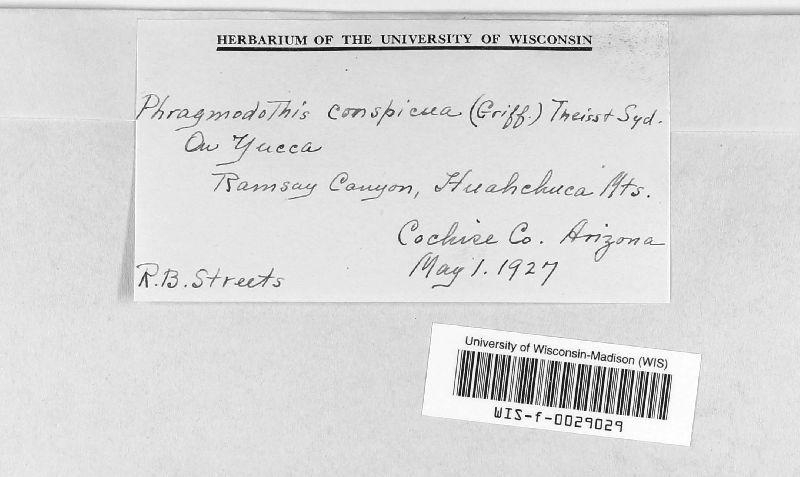 HERBARIUM OF THE UNIVERSITY OF WISCONSIN
Phragmodothis conspicua (Griff.) Theiss + Syd.
On Yucca
Ramsay Canyon, Huahchuca Mts.
Cochise Co. Arizona
May 1. 1927
R.B. Streets
University of Wisconsin-Madison (WIS)
WIS-f-0029029